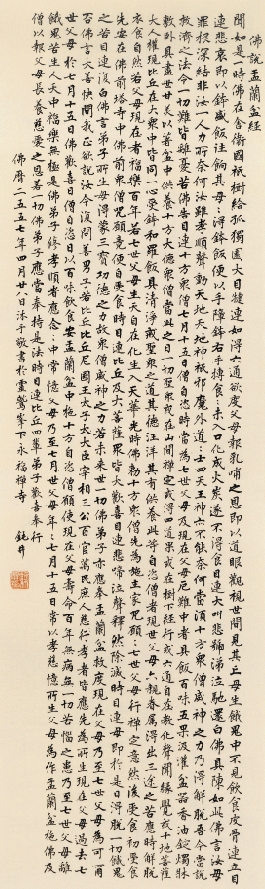 佛說盂蘭盆經
聞如是一時佛在舍衛國祇樹給孤獨園大目犍連始得六通欲度父母報乳哺之恩即以道眼觀視世間見其亡母生餓鬼中不見飲食皮骨連立目
連悲哀即以鉢盛飯往餉其母母得鉢飯便以左手障鉢右手摶食食未入口化成火炭遂不得食目連大叫悲號涕泣馳還白佛具陳如此佛言汝母
罪根深結非汝一人力所奈何汝雖孝順聲動天地天神地祇邪魔外道道士四天王神亦不能奈何當須十方眾僧威神之力乃得解脫吾今當說
救濟之法令一切難皆離憂苦佛告目連十方眾僧七月十五日僧自恣時當為七世父母及現在父母厄難中者具飯百味五果汲灌盆器香油錠燭牀
敷臥具盡世甘美以著盆中供養十方大德眾僧當此之日一切聖眾或在山間禪定或得四道果或在樹下經行或六通自在教化聲聞緣覺或十地菩薩
大人權現比丘在大眾中皆同一心受鉢和羅飯具清淨戒聖眾之道其德汪洋其有供養此等自恣僧者現世父母六親眷屬得出三途之苦應時解脫
衣食自然若父母現在者福樂百年若七世父母生天自在化生入天華光時佛敕十方眾僧皆先為施主家咒願願七世父母行禪定意然後受食初受食時
先安在佛前塔寺中佛前眾僧咒願竟便自受食時目連比丘及大菩薩眾皆大歡喜目連悲啼泣聲釋然除滅時目連母即於是日得脫一切餓鬼
之苦目連復白佛言弟子所生母得蒙三寶功德之力眾僧威神之力故若未來世一切佛弟子亦應奉盂蘭盆救度現在父母乃至七世父母為可爾
否佛言大善快問我正欲說汝今復問善男子若比丘比丘尼國王太子大臣宰相三公百官萬民庶人慈行孝者皆應先為所生現在父母過去七
世父母於七月十五日佛歡喜日僧自恣日以百味飲食安盂蘭盆中施十方自恣僧願使現在父母壽命百年無病無一切苦惱之患乃至七世父母離
餓鬼苦生人天中福樂無極是佛弟子修孝順者應念念中常憶父母乃至七世父母年年七月十五日常以孝慈憶所生父母為作盂蘭盆施佛及
僧以報父母長養慈愛之恩若一切佛弟子應當奉持是法時目連比丘四輩弟子歡喜奉行
佛曆二五五七年四月廿八日沐手敬書於靈鷲峯下永福禪寺